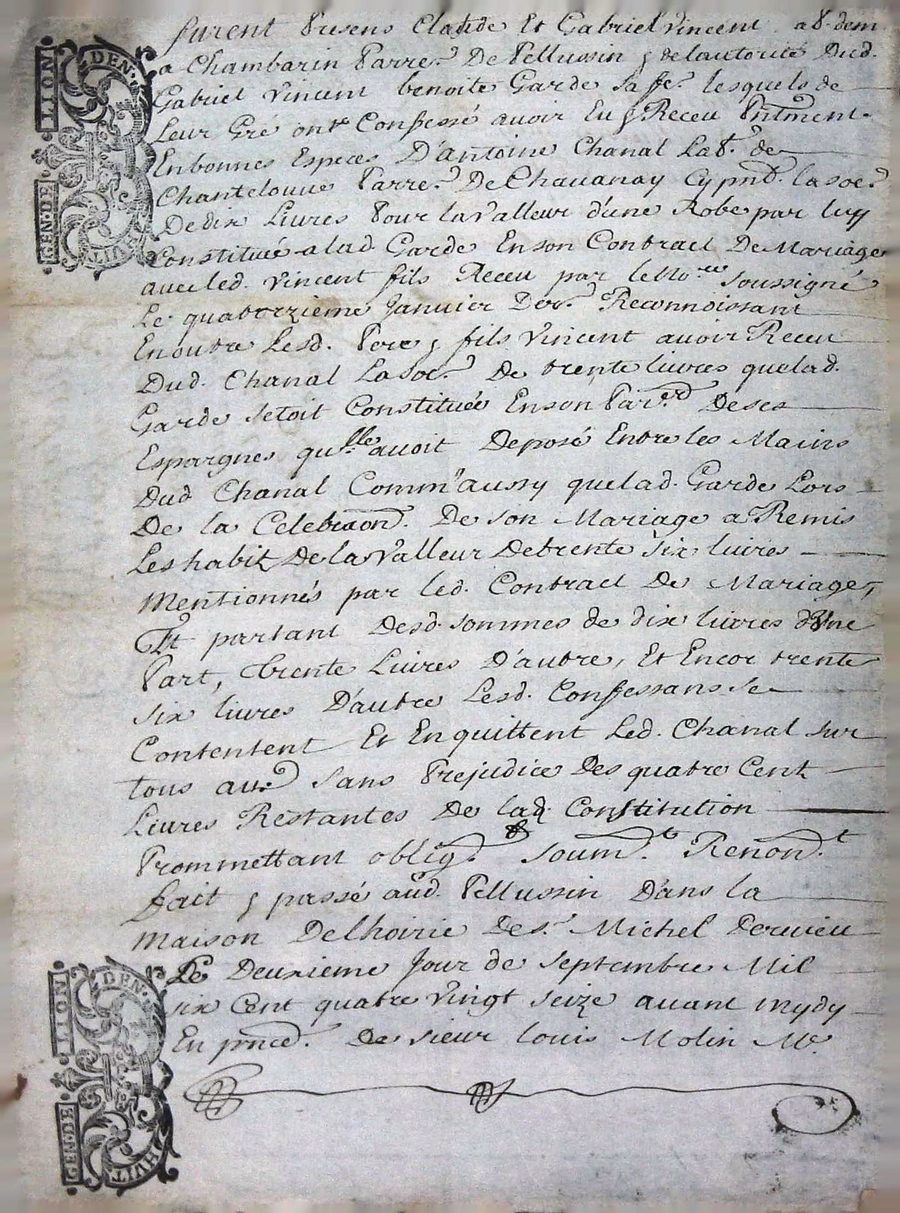 furent Presens Claude Et Gabriel Vincent
a Chambarin Parre. De Pellussin & de lautorité Dud.
Gabriel Vincent benoite Garde sa fe. lesquels de
Leur Gré ont Confessé avoir Eu & Receu
En bonnes Especes D'antoine Chanal Lab. de
Chantelouue Parre. De Chauanay Cy pnt. la soe.
De dix Livres Pour la Valleur d'une Robe par luy
Constitué a lad. Garde En son Contract De Mariage
auec led. Vincent fils Receu par le No.re soussigné
Le quatorzieme Januier Der. Reconnoissant
En outre Lesd. Pere & fils Vincent avoir Receu
Dud. Chanal La soe. De trente livres que lad.
Garde setoit Constituée En son Par.er De ses
Espargnes qu.lle auoit Deposé Entre les Mains
Dud Chanal Comm'aussy que lad. Garde Lors
De la Celebraon. De son Mariage a Remis
Les habit De la Valleur De trente six liures
Mentionnés par led. Contract De Mariage,
Et partant Desd. sommes de dix liures d'Vne
Part, trente Liures D'autre, Et Encor trente
six liures D'autre Lesd. Confessans se
Contentent Et En quittent Led. Chanal sur
tous au.e sans Prejudice Des quatre Cent
Livres Restantes De lad. Constitution
Prommettant oblig. soum.t Renon.t
fait & passé aud. Pellussin Dans la
maison De lhoirie De s.r Michel Deruieu
Le Deuxieme Jour de septembre Mil
six Cent quatre Vingt seize auant mydy
En pnce. De sieur Louis Molin Me.
GEN·DE·LION
DEN·
HVIT
GEN·DE·LION
DEN·
HVIT